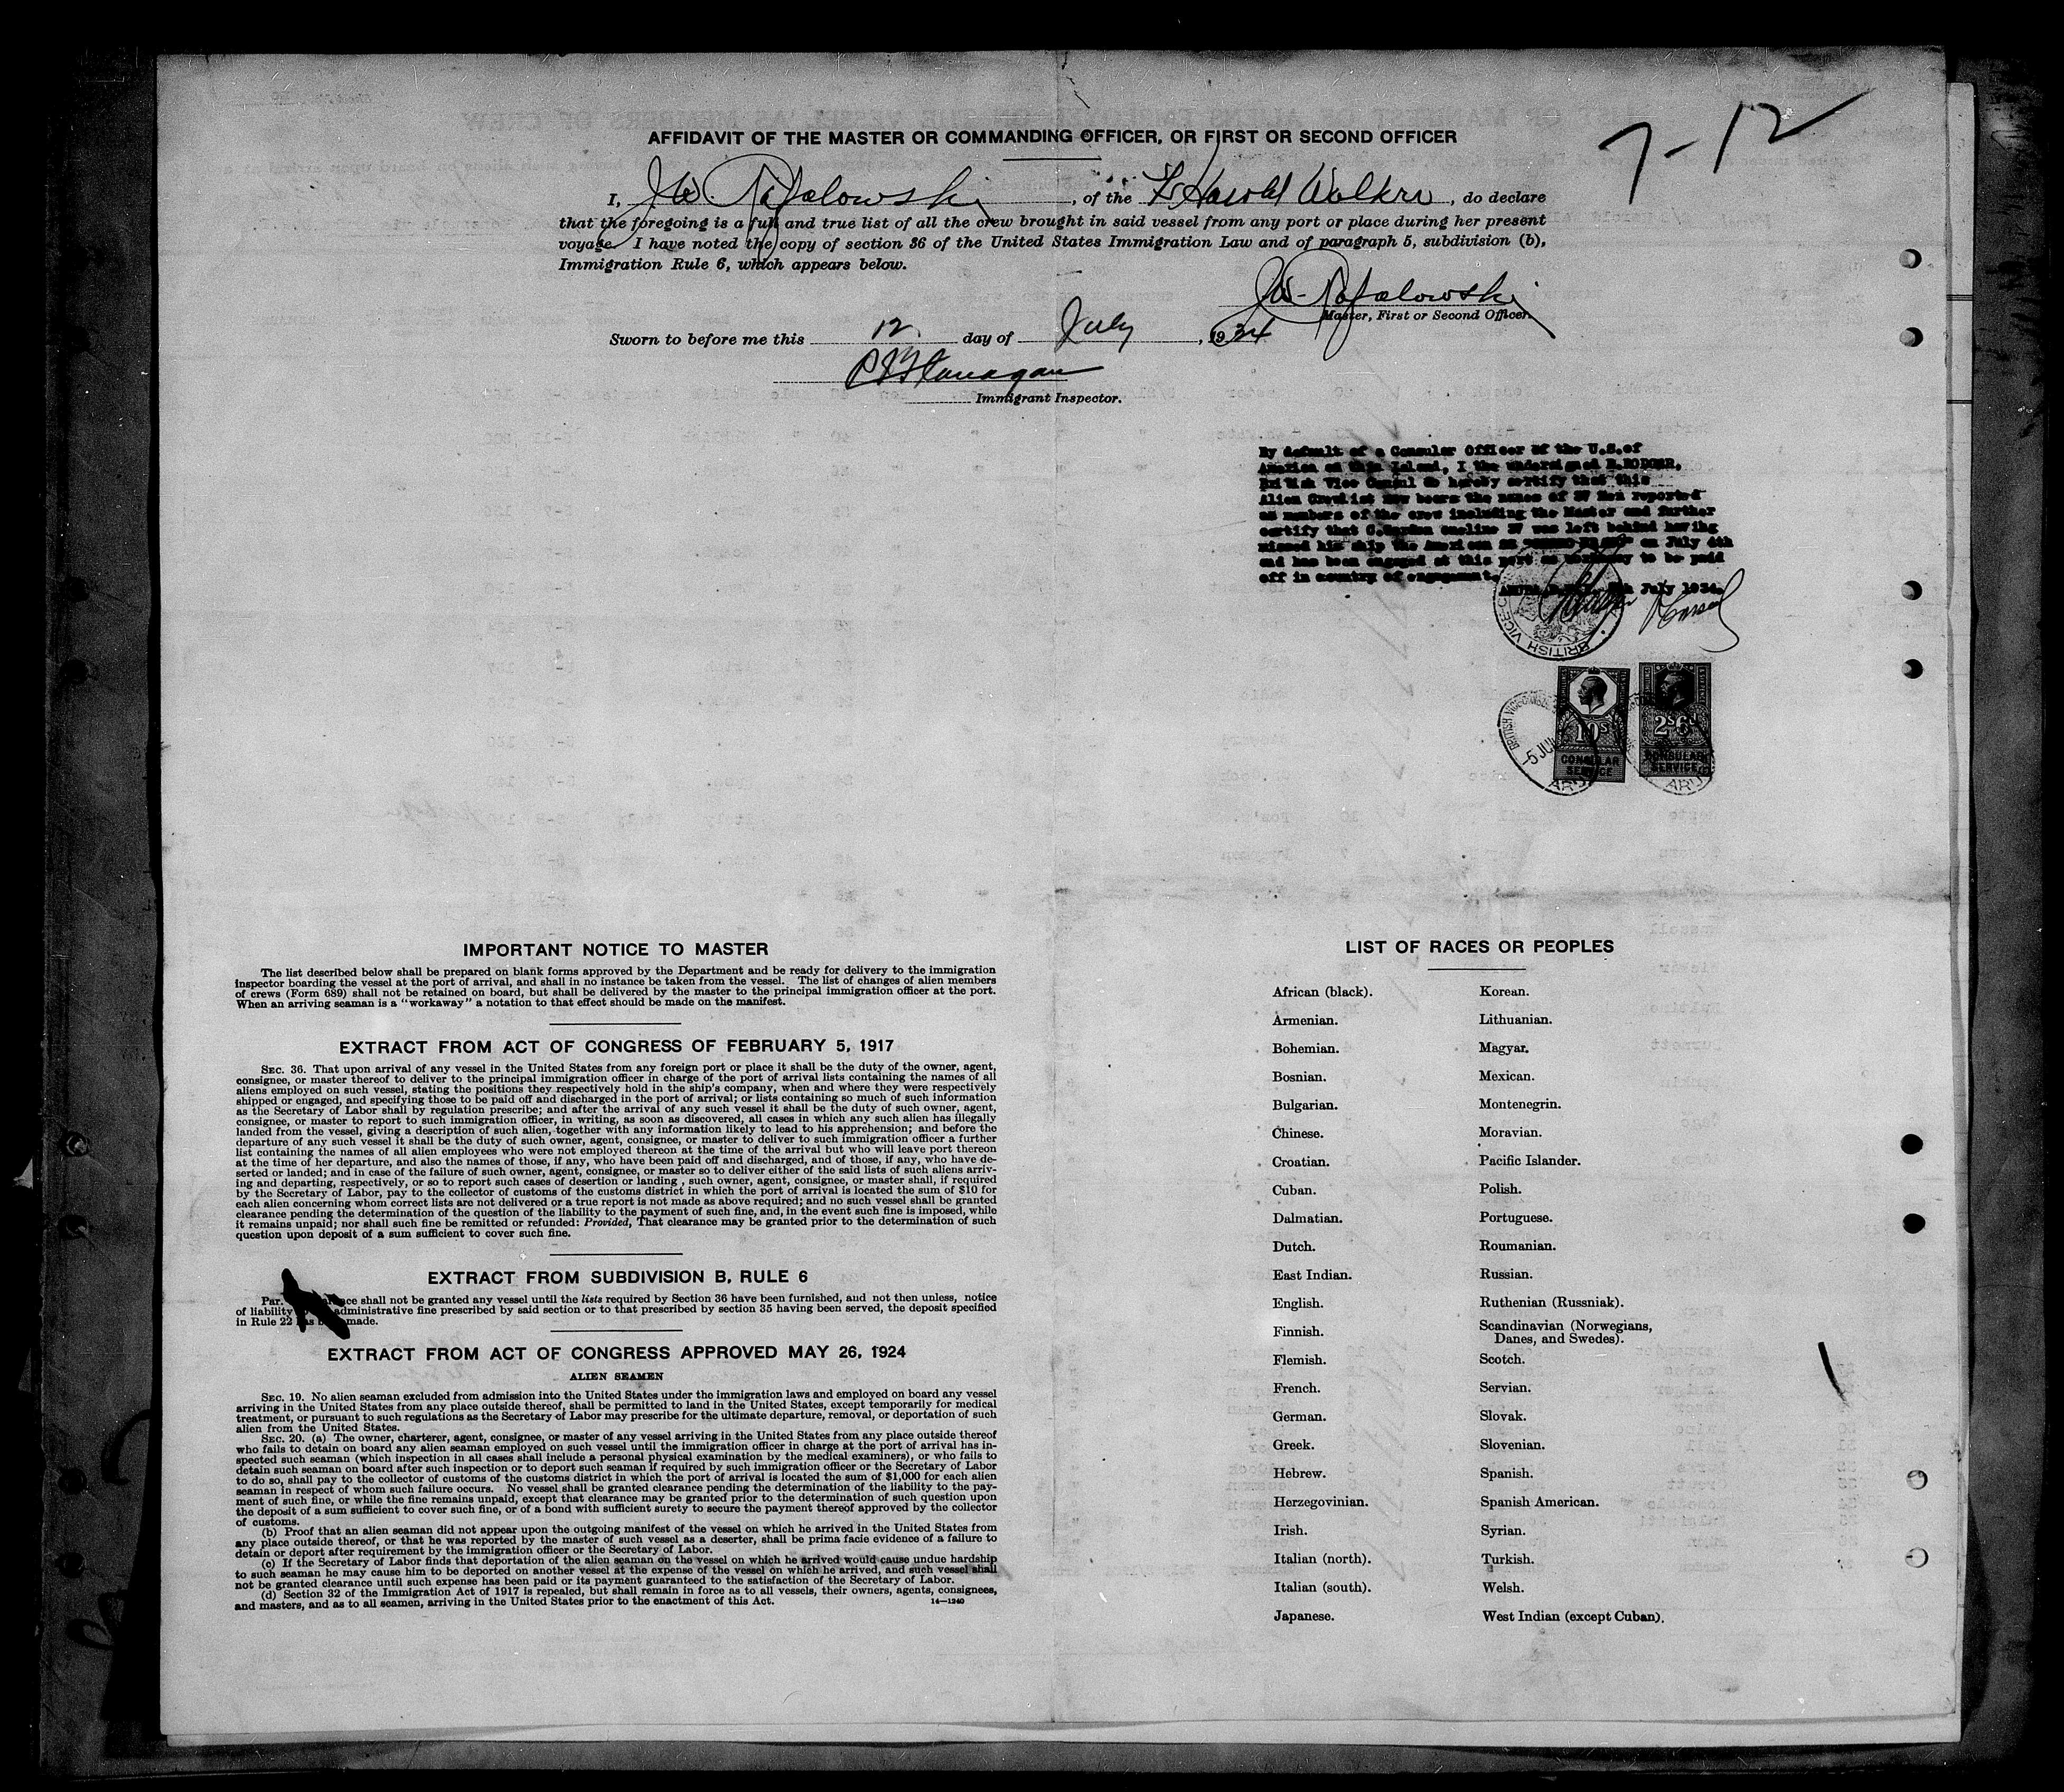 7-12
AFFIDAVIT OF THE MASTER OR COMMANDING OFFICER, OR FIRST OR SECOND OFFICER
I, J.W. Rafalowski, of the Harold Walker, do declare
that the foregoing is a full and true list of all the crew brought in said vessel from any port or place during her present
voyage. I have noted the copy of section 36 of the United States Immigration Law and of paragraph 5, subdivision (b),
Immigration Rule 6, which appears below.
J.W. Rafalowski
Master, First or Second Officer.
Sworn to before me this 12 day of July, 1934
Flanagan
Immigrant Inspector.
By default of a Consular Officer of the U.S.of
America on this Island, I the undersigned
British Vice Consul do hereby certify that this
Alien Crewlist now bears the names of 37 Men reported
as members of the crew including the Master and further
certify that online 37 was left behind having
missed his ship the American SS on July 4th
and has been engaged at this port as workaway to be paid
off in country of engagement.
July 1934.
BRITISH VICE-C
10s
CONSULAR
SERVICE
2s6d
CONSULAR
SERVICE
BRITISH VICE-CONSUL
-5 JUL
ARU
ARU
IMPORTANT NOTICE TO MASTER
The list described below shall be prepared on blank forms approved by the Department and be ready for delivery to the immigration
inspector boarding the vessel at the port of arrival, and shall in no instance be taken from the vessel. The list of changes of alien members
of crews (Form 689) shall not be retained on board, but shall be delivered by the master to the principal immigration officer at the port.
When an arriving seaman is a "workaway" a notation to that effect should be made on the manifest.
EXTRACT FROM ACT OF CONGRESS OF FEBRUARY 5, 1917
SEC. 36. That upon arrival of any vessel in the United States from any foreign port or place it shall be the duty of the owner, agent,
consignee, or master thereof to deliver to the principal immigration officer in charge of the port of arrival lists containing the names of all
aliens employed on such vessel, stating the positions they respectively hold in the ship's company, when and where they were respectively
shipped or engaged, and specifying those to be paid off and discharged in the port of arrival; or lists containing so much of such information
as the Secretary of Labor shall by regulation prescribe; and after the arrival of any such vessel it shall be the duty of such owner, agent,
consignee, or master to report to such immigration officer, in writing, as soon as discovered, all cases in which any such alien has illegally
landed from the vessel, giving a description of such alien, together with any information likely to lead to his apprehension; and before the
departure of any such vessel it shall be the duty of such owner, agent, consignee, or master to deliver to such immigration officer a further
list containing the names of all alien employees who were not employed thereon at the time of the arrival but who will leave port thereon
at the time of her departure, and also the names of those, if any, who have been paid off and discharged, and of those, if any, who have de-
serted or landed; and in case of the failure of such owner, agent, consignee, or master so to deliver either of the said lists of such aliens arriv-
ing and departing, respectively, or so to report such cases of desertion or landing , such owner, agent, consignee, or master shall, if required
by the Secretary of Labor, pay to the collector of customs of the customs district in which the port of arrival is located the sum of $10 for
each alien concerning whom correct lists are not delivered or a true report is not made as above required; and no such vessel shall be granted
clearance pending the determination of the question of the liability to the payment of such fine, and, in the event such fine is imposed, while
it remains unpaid; nor shall such fine be remitted or refunded: Provided, That clearance may be granted prior to the determination of such
question upon deposit of a sum sufficient to cover such fine.
EXTRACT FROM SUBDIVISION B, RULE 6
Par. ce shall not be granted any vessel until the lists required by Section 36 have been furnished, and not then unless, notice
of liability administrative fine prescribed by said section or to that prescribed by section 35 having been served, the deposit specified
in Rule 22 has been made.
EXTRACT FROM ACT OF CONGRESS APPROVED MAY 26, 1924
ALIEN SEAMEN
SEC. 19. No alien seaman excluded from admission into the United States under the immigration laws and employed on board any vessel
arriving in the United States from any place outside thereof, shall be permitted to land in the United States, except temporarily for medical
treatment, or pursuant to such regulations as the Secretary of Labor may prescribe for the ultimate departure, removal, or deportation of such
alien from the United States.
SEC. 20. (a) The owner, charterer, agent, consignee, or master of any vessel arriving in the United States from any place outside thereof
who fails to detain on board any alien seaman employed on such vessel until the immigration officer in charge at the port of arrival has in-
spected such seaman (which inspection in all cases shall include a personal physical examination by the medical examiners), or who fails to
detain such seaman on board after such inspection or to deport such seaman if required by such immigration officer or the Secretary of Labor
to do so, shall pay to the collector of customs of the customs district in which the port of arrival is located the sum of $1,000 for each alien
seaman in respect of whom such failure occurs. No vessel shall be granted clearance pending the determination of the liability to the pay-
ment of such fine, or while the fine remains unpaid, except that clearance may be granted prior to the determination of such question upon
the deposit of a sum sufficient to cover such fine, or of a bond with sufficient surety to secure the payment thereof approved by the collector
of customs.
(b) Proof that an alien seaman did not appear upon the outgoing manifest of the vessel on which he arrived in the United States from
any place outside thereof, or that he was reported by the master of such vessel as a deserter, shall be prima facie evidence of a failure to
detain or deport after requirement by the immigration officer or the Secretary of Labor.
(c) If the Secretary of Labor finds that deportation of the alien seaman on the vessel on which he arrived would cause undue hardship
to such seaman he may cause him to be deported on another vessel at the expense of the vessel on which he arrived, and such vessel shall
not be granted clearance until such expense has been paid or its payment guaranteed to the satisfaction of the Secretary of Labor.
(d) Section 32 of the Immigration Act of 1917 is repealed, but shall remain in force as to all vessels, their owners, agents, consignees,
and masters, and as to all seamen, arriving in the United States prior to the enactment of this Act.
14—1240
LIST OF RACES OR PEOPLES
African (black).
Armenian.
Bohemian.
Bosnian.
Bulgarian.
Chinese.
Croatian.
Cuban.
Dalmatian.
Dutch.
East Indian.
English.
Finnish.
Flemish.
French.
German.
Greek.
Hebrew.
Herzegovinian.
Irish.
Italian (north).
Italian (south).
Japanese.
Korean.
Lithuanian.
Magyar.
Mexican.
Montenegrin.
Moravian.
Pacific Islander.
Polish.
Portuguese.
Roumanian.
Russian.
Ruthenian (Russniak).
Scandinavian (Norwegians,
Danes, and Swedes).
Scotch.
Servian.
Slovak.
Slovenian.
Spanish.
Spanish American.
Syrian.
Turkish.
Welsh.
West Indian (except Cuban).